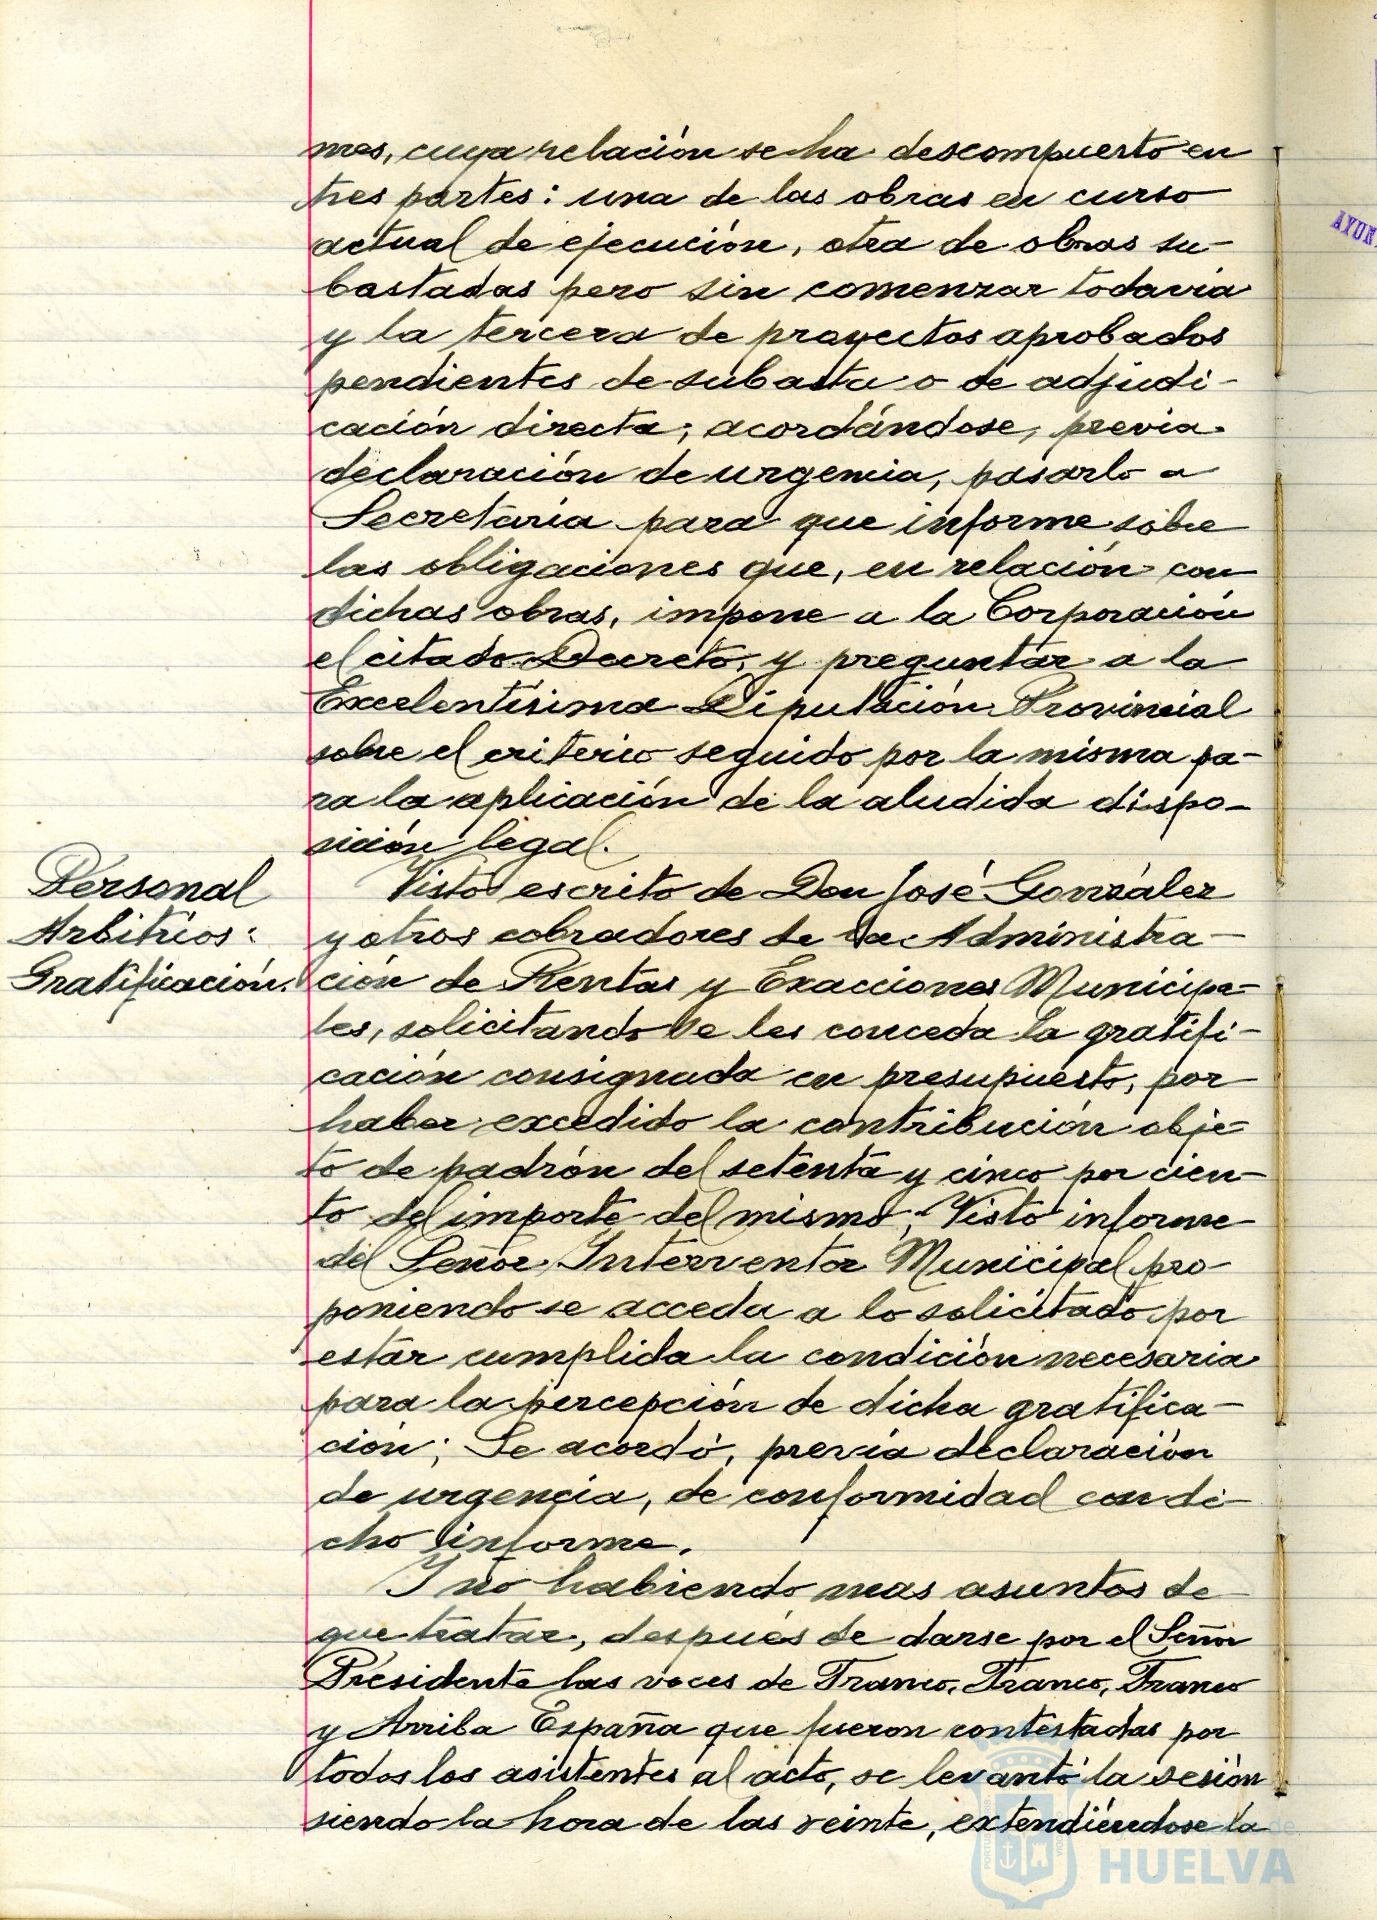 mes, cuya relación se ha descompuesto en
tres partes: una de las obras en curso
actual de ejecución, otra de obras su-
bastadas pero sin comenzar todavía
y la tercera de proyectos aprobados
pendientes de subasta o de adjudi-
cación directa; acordándose, previa
declaración de urgencia, pasarlo a
Secretaría para que informe sobre
las obligaciones que, en relación con
dichas obras, impone a la Corporación
el citado Decreto, y preguntar a la
Excelentísima Diputación Provincial
sobre el criterio seguido por la misma pa-
ra la aplicación de la aludida dispo-
sición legal.
Personal
Arbitrios:
Gratificación.
Visto escrito de Don José González
y otros cobradores de la Administra-
ción de Rentas y Exacciones Municipa-
les, solicitando se les conceda la gratifi-
cación consignada en presupuesto, por
haber excedido la contribución obje-
to de padrón del setenta y cinco por cien-
to del importe del mismo; Visto informe
del Señor Interventor Municipal pro-
poniendo se acceda a lo solicitado por
estar cumplida la condición necesaria
para la percepción de dicha gratifica-
ción; Se acordó, previa declaración
de urgencia, de conformidad con di-
cho informe.
Y no habiendo mas asuntos de
que tratar, después de darse por el Señor
Presidente las voces de Franco, Franco, Franco
y Arriba España que fueron contestadas por
todos los asistentes al acto, se levantó la sesión
siendo la hora de las veinte, extendiéndose la
AYUN
HUELVA